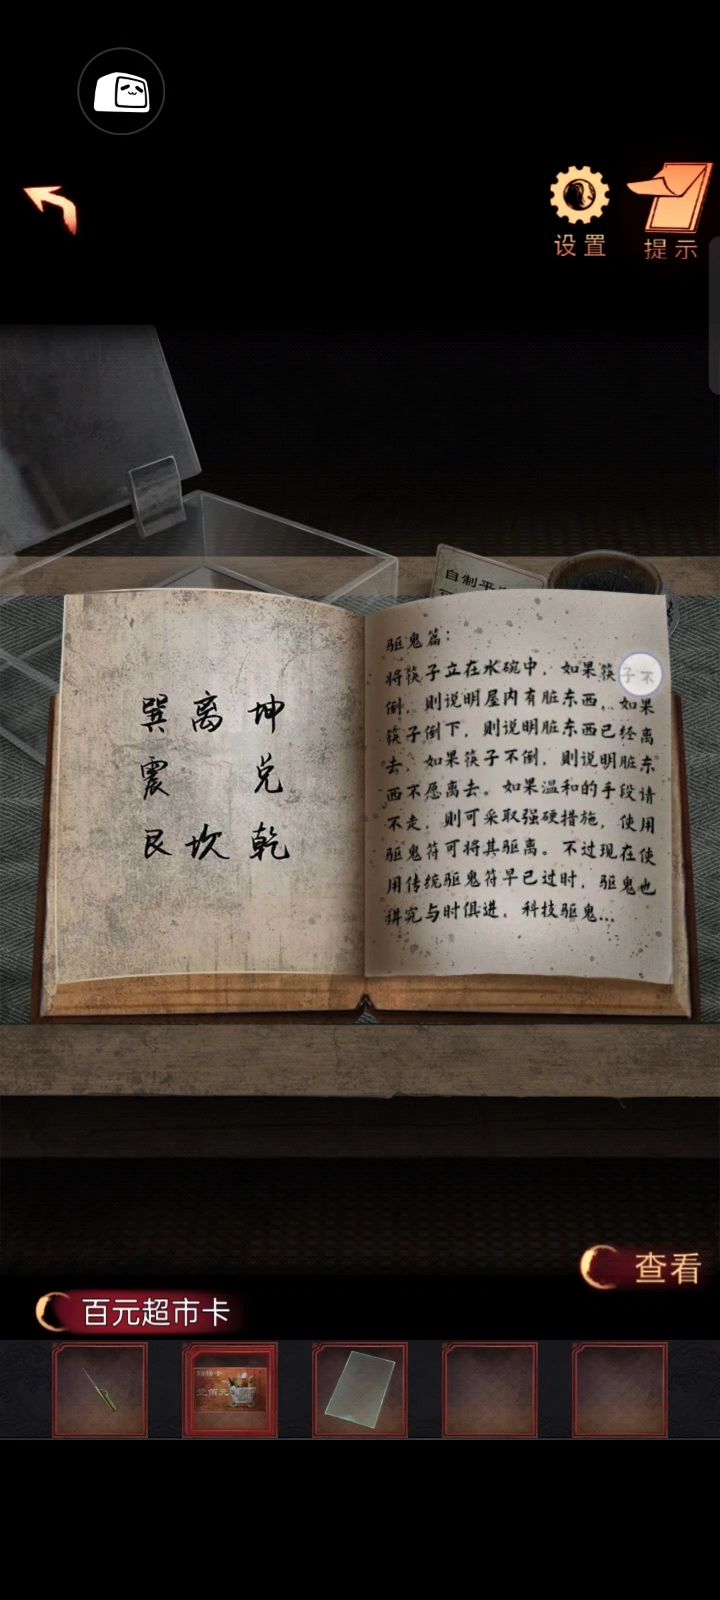 设置
提示
自制平
巽 离 坤
震 兑
艮 坎 乾
驱鬼篇：
将筷子立在水碗中，如果筷子不
倒，则说明屋内有脏东西，如果
筷子倒下，则说明脏东西已经离
去，如果筷子不倒，则说明脏东
西不愿离去。如果温和的手段请
不走，则可采取强硬措施，使用
驱鬼符可将其驱离。不过现在使
用传统驱鬼符早已过时，驱鬼也
讲究与时俱进，科技驱鬼...
查看
百元超市卡